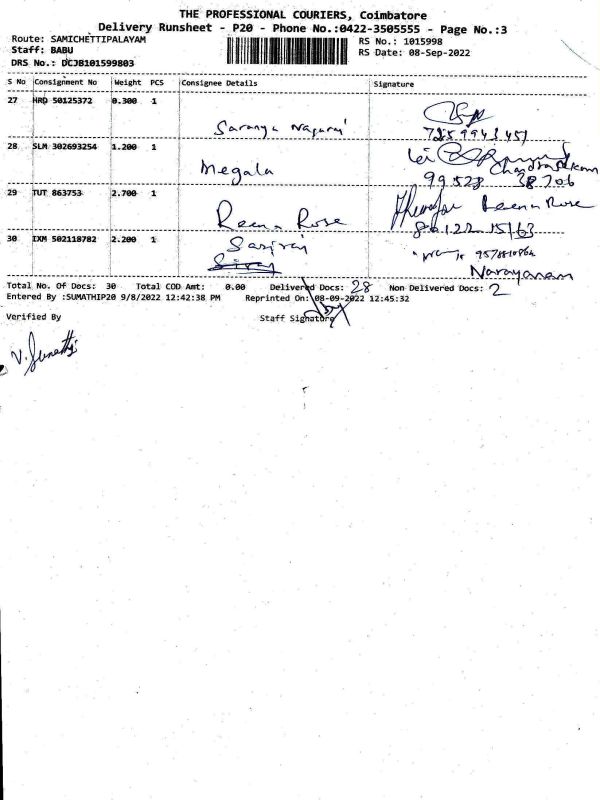 THE PROFESSIONAL COURIERS, Coimbatore
Delivery Runsheet - P20 - Phone No.:0422-3505555 - Page No.:3
Route: SAMICHETTIPALAYAM RS No.: 1015998
Staff: BABU RS Date: 08-Sep-2022
DRS No.: DCJB101599803
S No Consignment No Weight PCS Consignee Details Signature
27 HRD 50125372 0.300 1
Saranya Nagaraj
28 SLM 302693254 1.200 1
Megala Chandrasekaran
99528 38706
29 TUT 863753 2.700 1
Reena Rose Reena Rose
30 IXM 502118782 2.200 1
Narayanan
Total No. Of Docs: 30 Total COD Amt: 0.00 Delivered Docs: 28 Non Delivered Docs: 2
Entered By :SUMATHIP20 9/8/2022 12:42:38 PM Reprinted On: 08-09-2022 12:45:32
Verified By Staff Signature